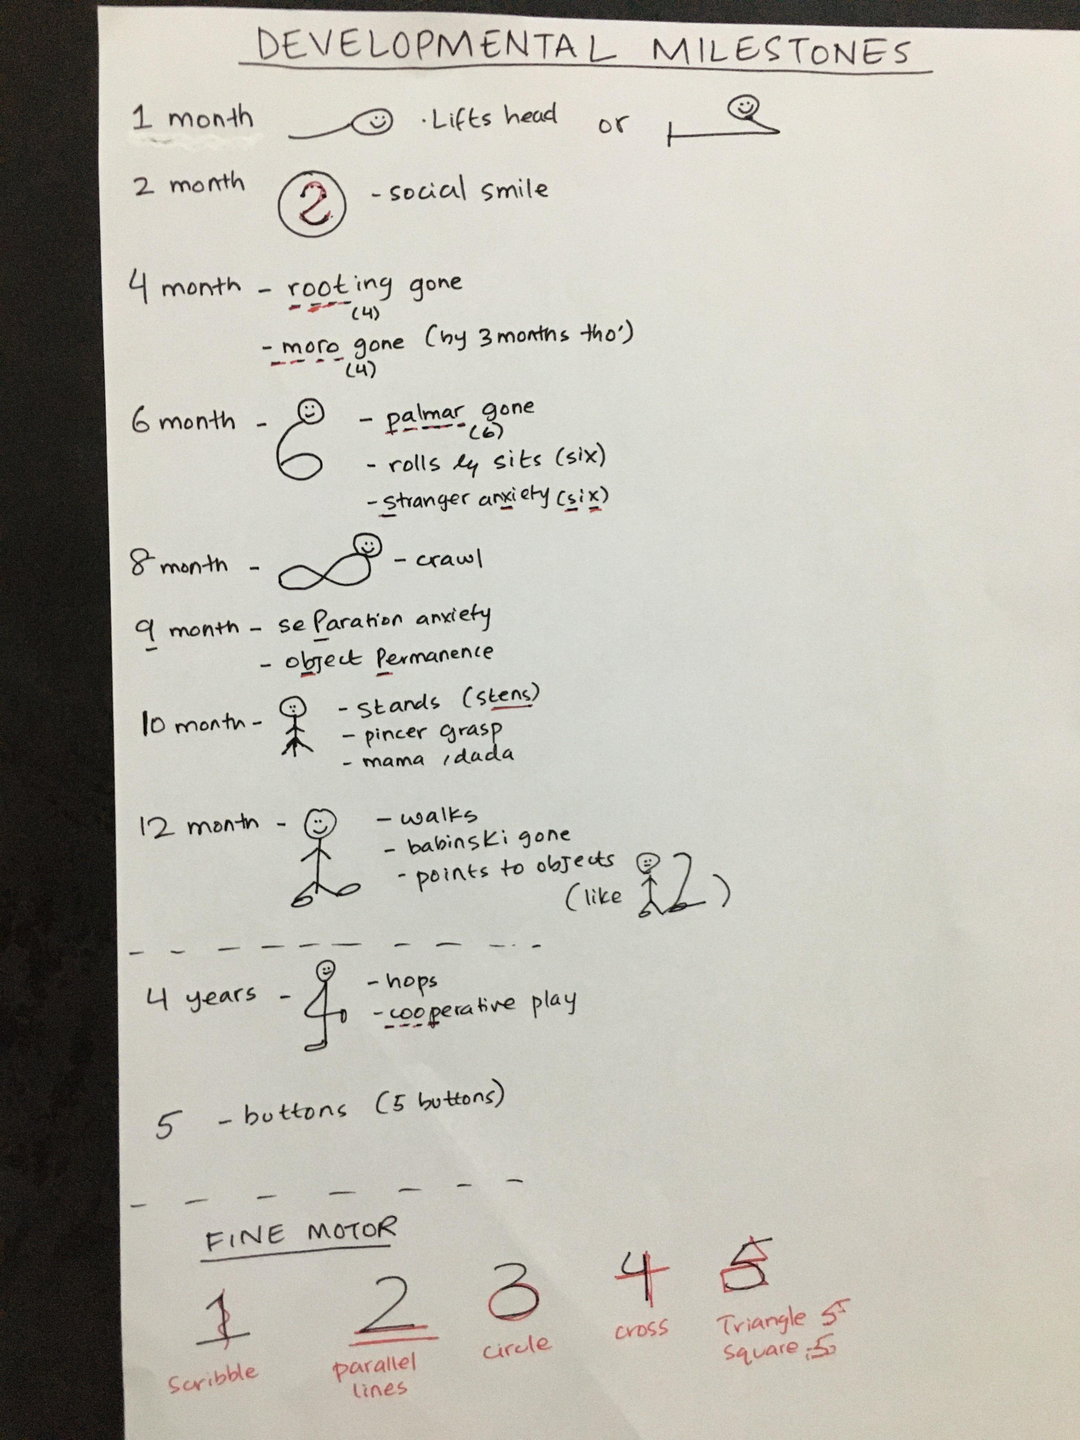 DEVELOPMENTAL MILESTONES
1 month · Lifts head or
2 month 2 - social smile
4 month - rooting gone
(4)
- moro gone (by 3 months tho')
(4)
6 month - - palmar gone
(6)
- rolls & sits (six)
- stranger anxiety (six)
8 month - - crawl
9 month - seParation anxiety
- object Permanence
10 month - - stands (stens)
- pincer grasp
- mama, dada
12 month - - walks
- babinski gone
- points to objects
(like 12)
4 years - - hops
- cooperative play
5 - buttons (5 buttons)
FINE MOTOR
1 2 3 4 5
Scribble parallel lines circle cross Triangle 5
Square 5